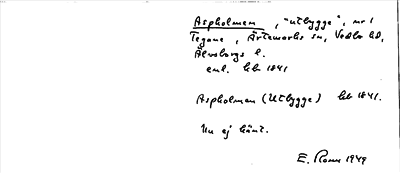 Aspholmen, "utbygge", nr 1
Tegane, Ärtemarks sn, Vedbo hd,
Älvsborgs l.
enl. kbr 1841
Aspholmen (Utbygge) kbr 1841.
Nu ej känt.
E. Rosen 1949